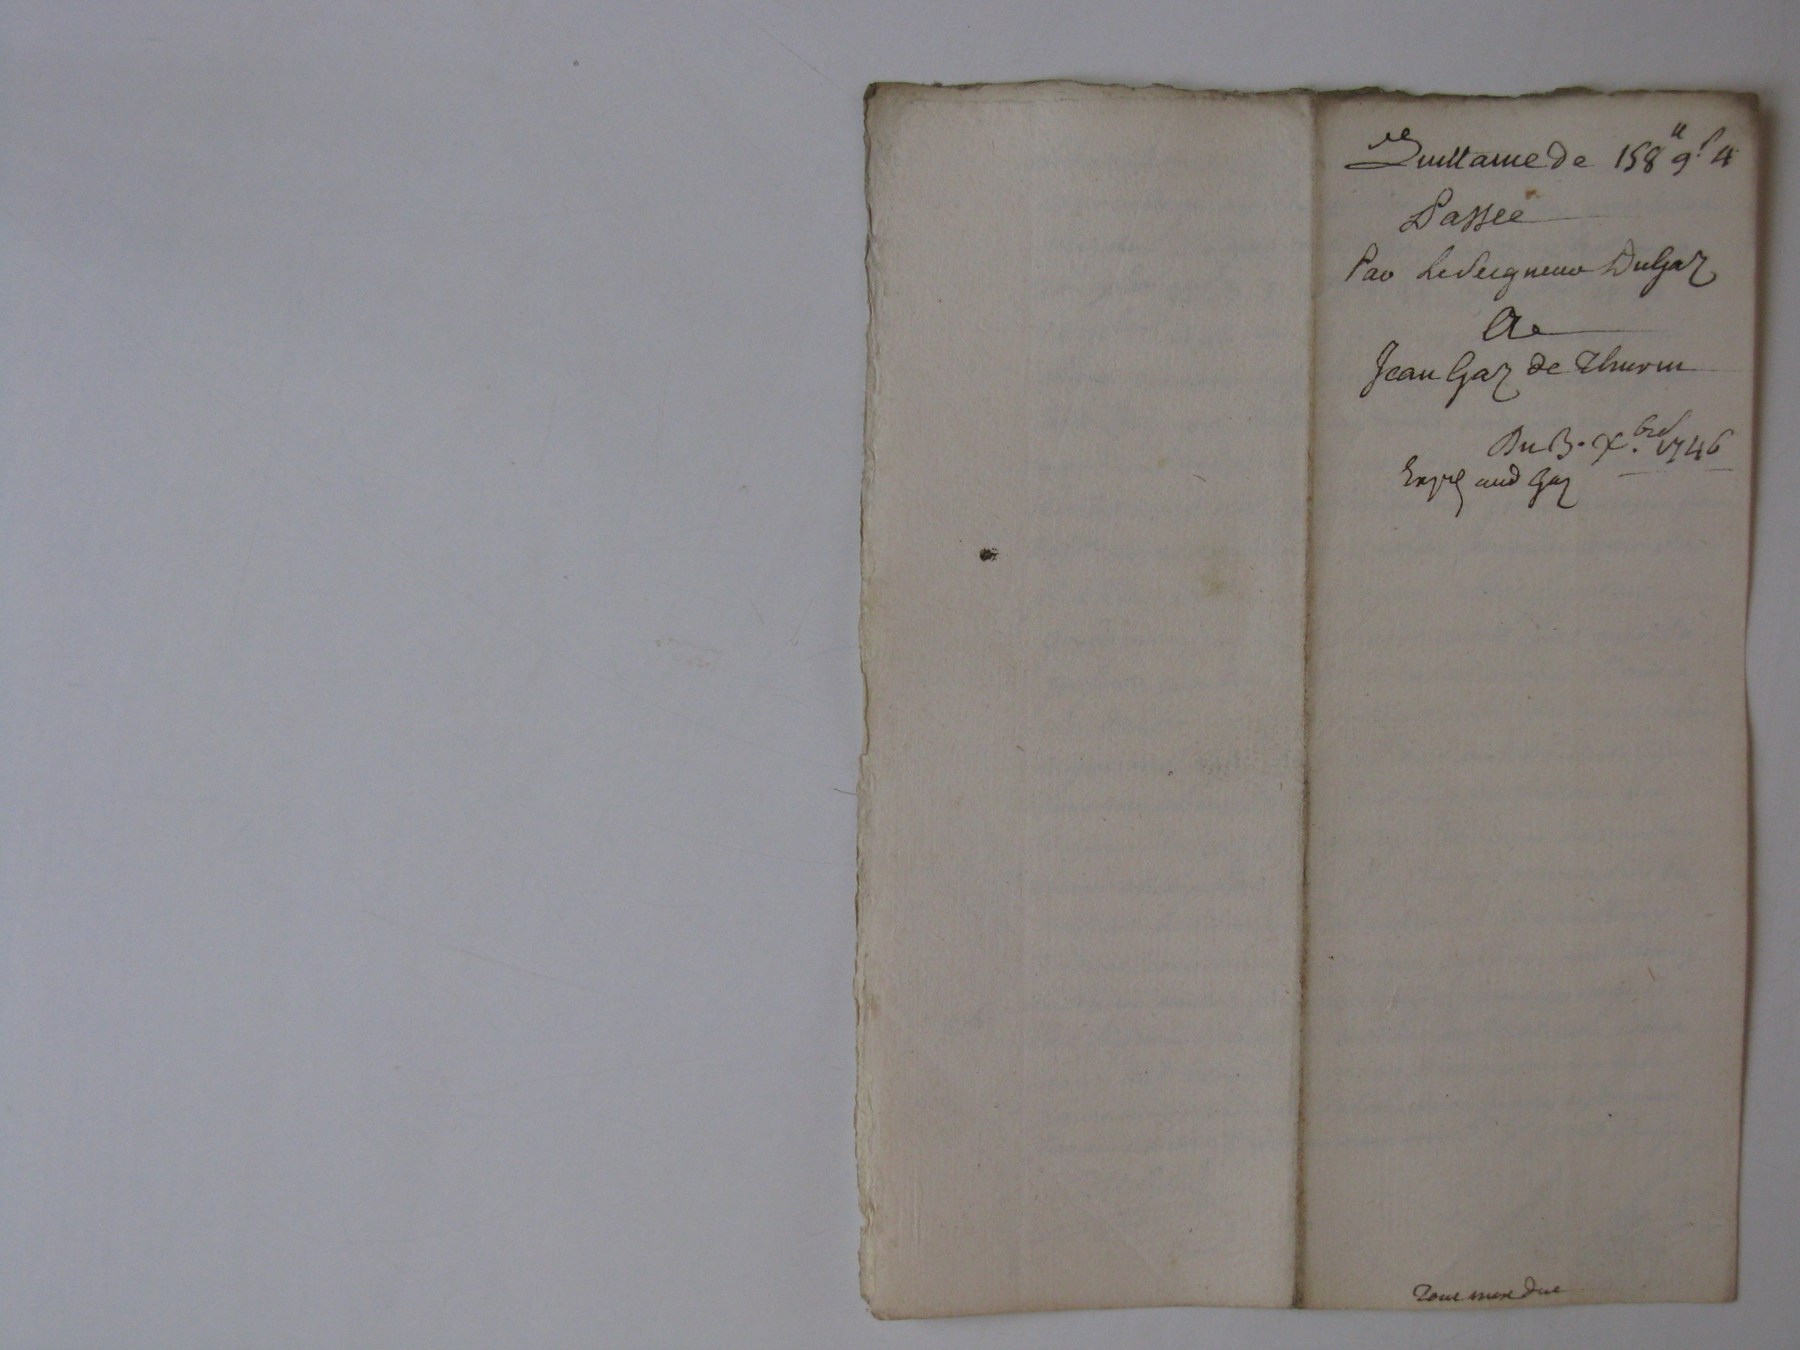 Quittance de 158ˡˡ 9ˢ 4
Passee
Par Le Seigneur Du Gaz
A
Jean Gaz de Thurin
Du 3. Xbre 1746
Expᵉ aud Gaz